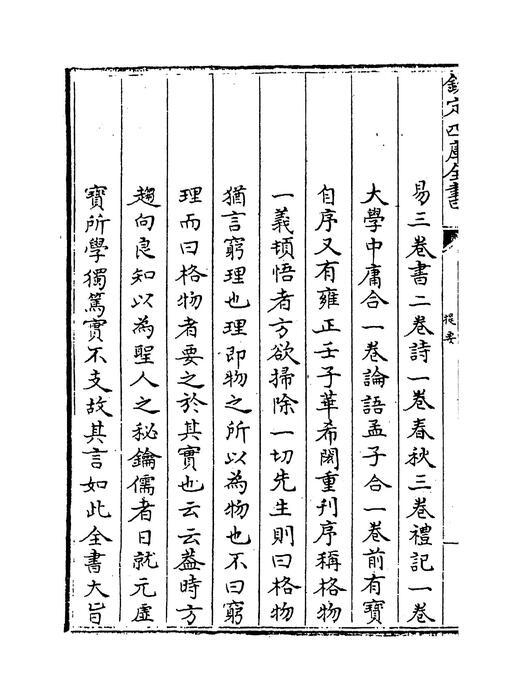 欽定四庫全書
提要
易三卷書二卷詩一卷春秋三卷禮記一卷
大學中庸合一卷論語孟子合一卷前有寶
自序又有雍正壬子華希閎重刊序稱格物
一義頓悟者方欲掃除一切先生則曰格物
猶言窮理也理即物之所以為物也不曰窮
理而曰格物者要之於其實也云云葢時方
趨向良知以為聖人之秘鑰儒者日就元虛
寶所學獨篤實不支故其言如此全書大旨